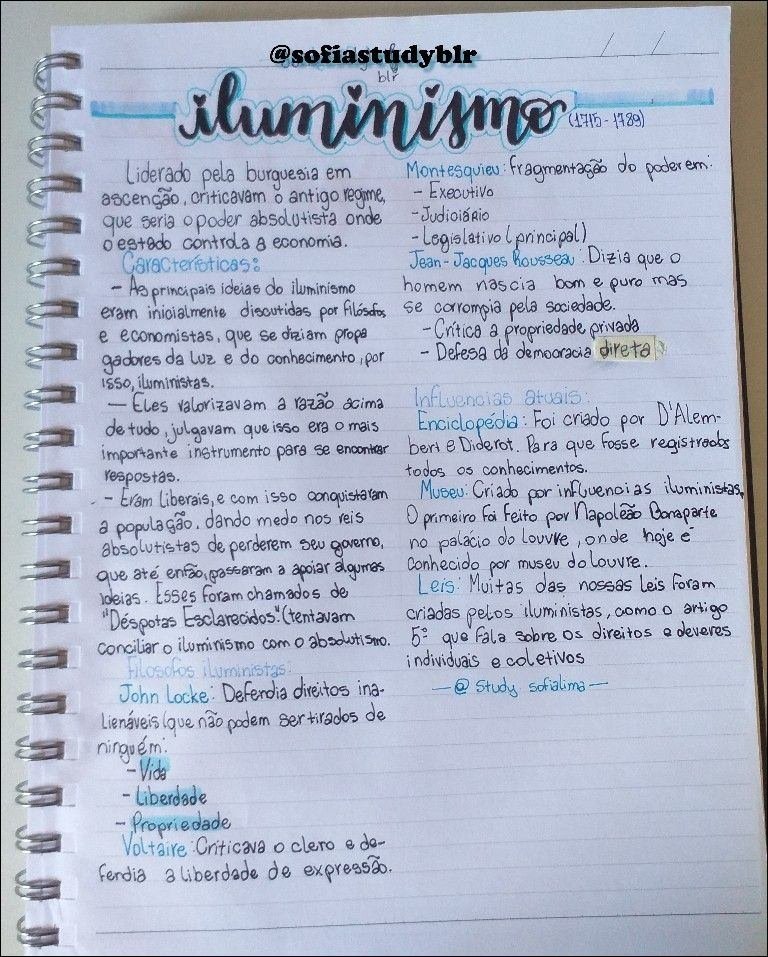 @sofiastudyblr
blr
iluminismo (1715-1789)
Liderado pela burguesia em
ascenção, criticavam o antigo regime,
que seria o poder absolutista onde
o estado controla a economia.
Características:
- As principais ideias do iluminismo
eram inicialmente discutidas por filósofos
e economistas, que se diziam propa
gadores da luz e do conhecimento, por
isso, iluministas.
- Eles valorizavam a razão acima
de tudo, julgavam que isso era o mais
importante instrumento para se encontrar
respostas.
- Eram liberais, e com isso conquistaram
a população, dando medo nos reis
absolutistas de perderem seu governo,
que até então, passaram a apoiar algumas
ideias. Esses foram chamados de
"Déspotas Esclarecidos."(tentavam
conciliar o iluminismo com o absolutismo.
Filosofos iluministas:
John Locke: Defendia direitos ina-
lienáveis (que não podem ser tirados de
ninguém:
- Vida
- Liberdade
- Propriedade
Voltaire: Criticava o clero e de-
fendia a liberdade de expressão.
Montesquieu: fragmentação do poder em:
- Executivo
- Judiciário
- Legislativo (principal)
Jean-Jacques Rousseau: Dizia que o
homem nascia bom e puro mas
se corrompia pela sociedade.
- Critica a propriedade privada
- Defesa da democracia direta
Influencias atuais:
Enciclopédia: Foi criado por D'Alem-
bert e Diderot. Para que fosse registrados
todos os conhecimentos.
Museu: Criado por influencias iluministas,
O primeiro foi feito por Napoleão Bonaparte
no palácio do louvre, onde hoje é
conhecido por museu do louvre.
Leis: Muitas das nossas Leis foram
criadas pelos iluministas, como o artigo
5º que fala sobre os direitos e deveres
individuais e coletivos
—@ Study sofialima—